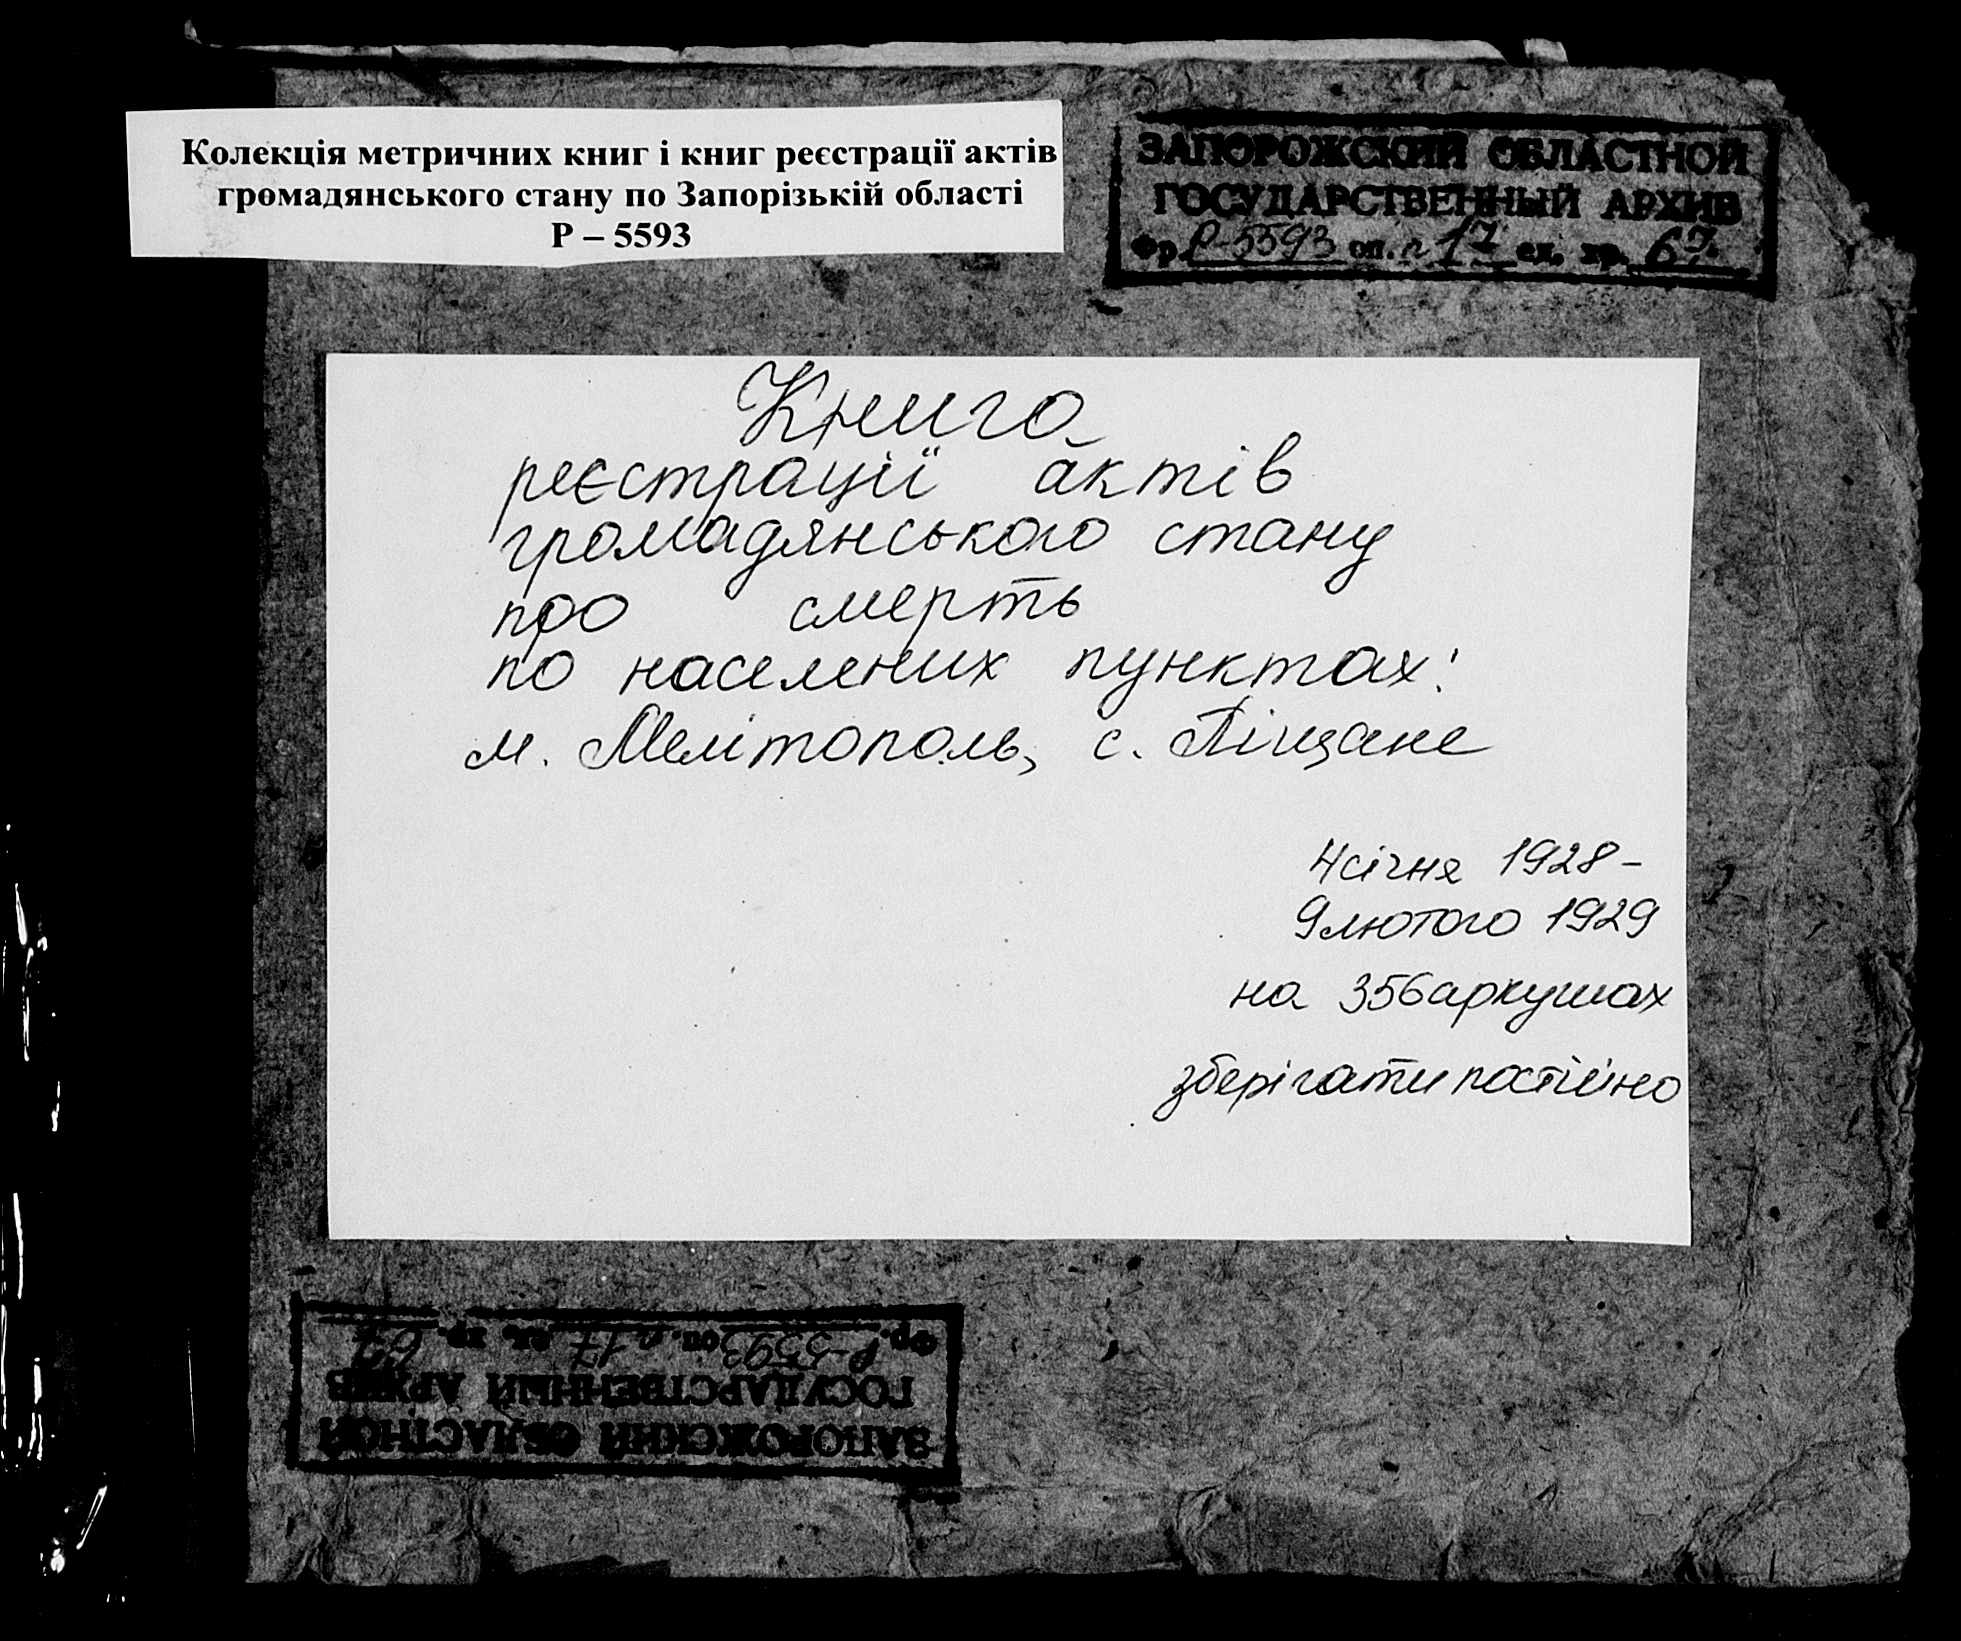 Колекція метричних книг і книг реєстрації актів
громадянського стану по Запорізькій області
Р – 5593
ЗАПОРОЖСКИЙ ОБЛАСТНОЙ
ГОСУДАРСТВЕННЫЙ АРХИВ
Фр. Р-5593 оп. 17 ед. хр. 67
Книга
реєстрації актів
громадянського стану
про смерть
по населених пунктах:
м. Мелітополь, с. Піщане
4 січня 1928 –
9 лютого 1929
на 356 аркушах
зберігати постійно
ЗАПОРОЖСКИЙ ОБЛАСТНОЙ
ГОСУДАРСТВЕННЫЙ АРХИВ
Фр. Р-5593 оп. 17 ед. хр. 67